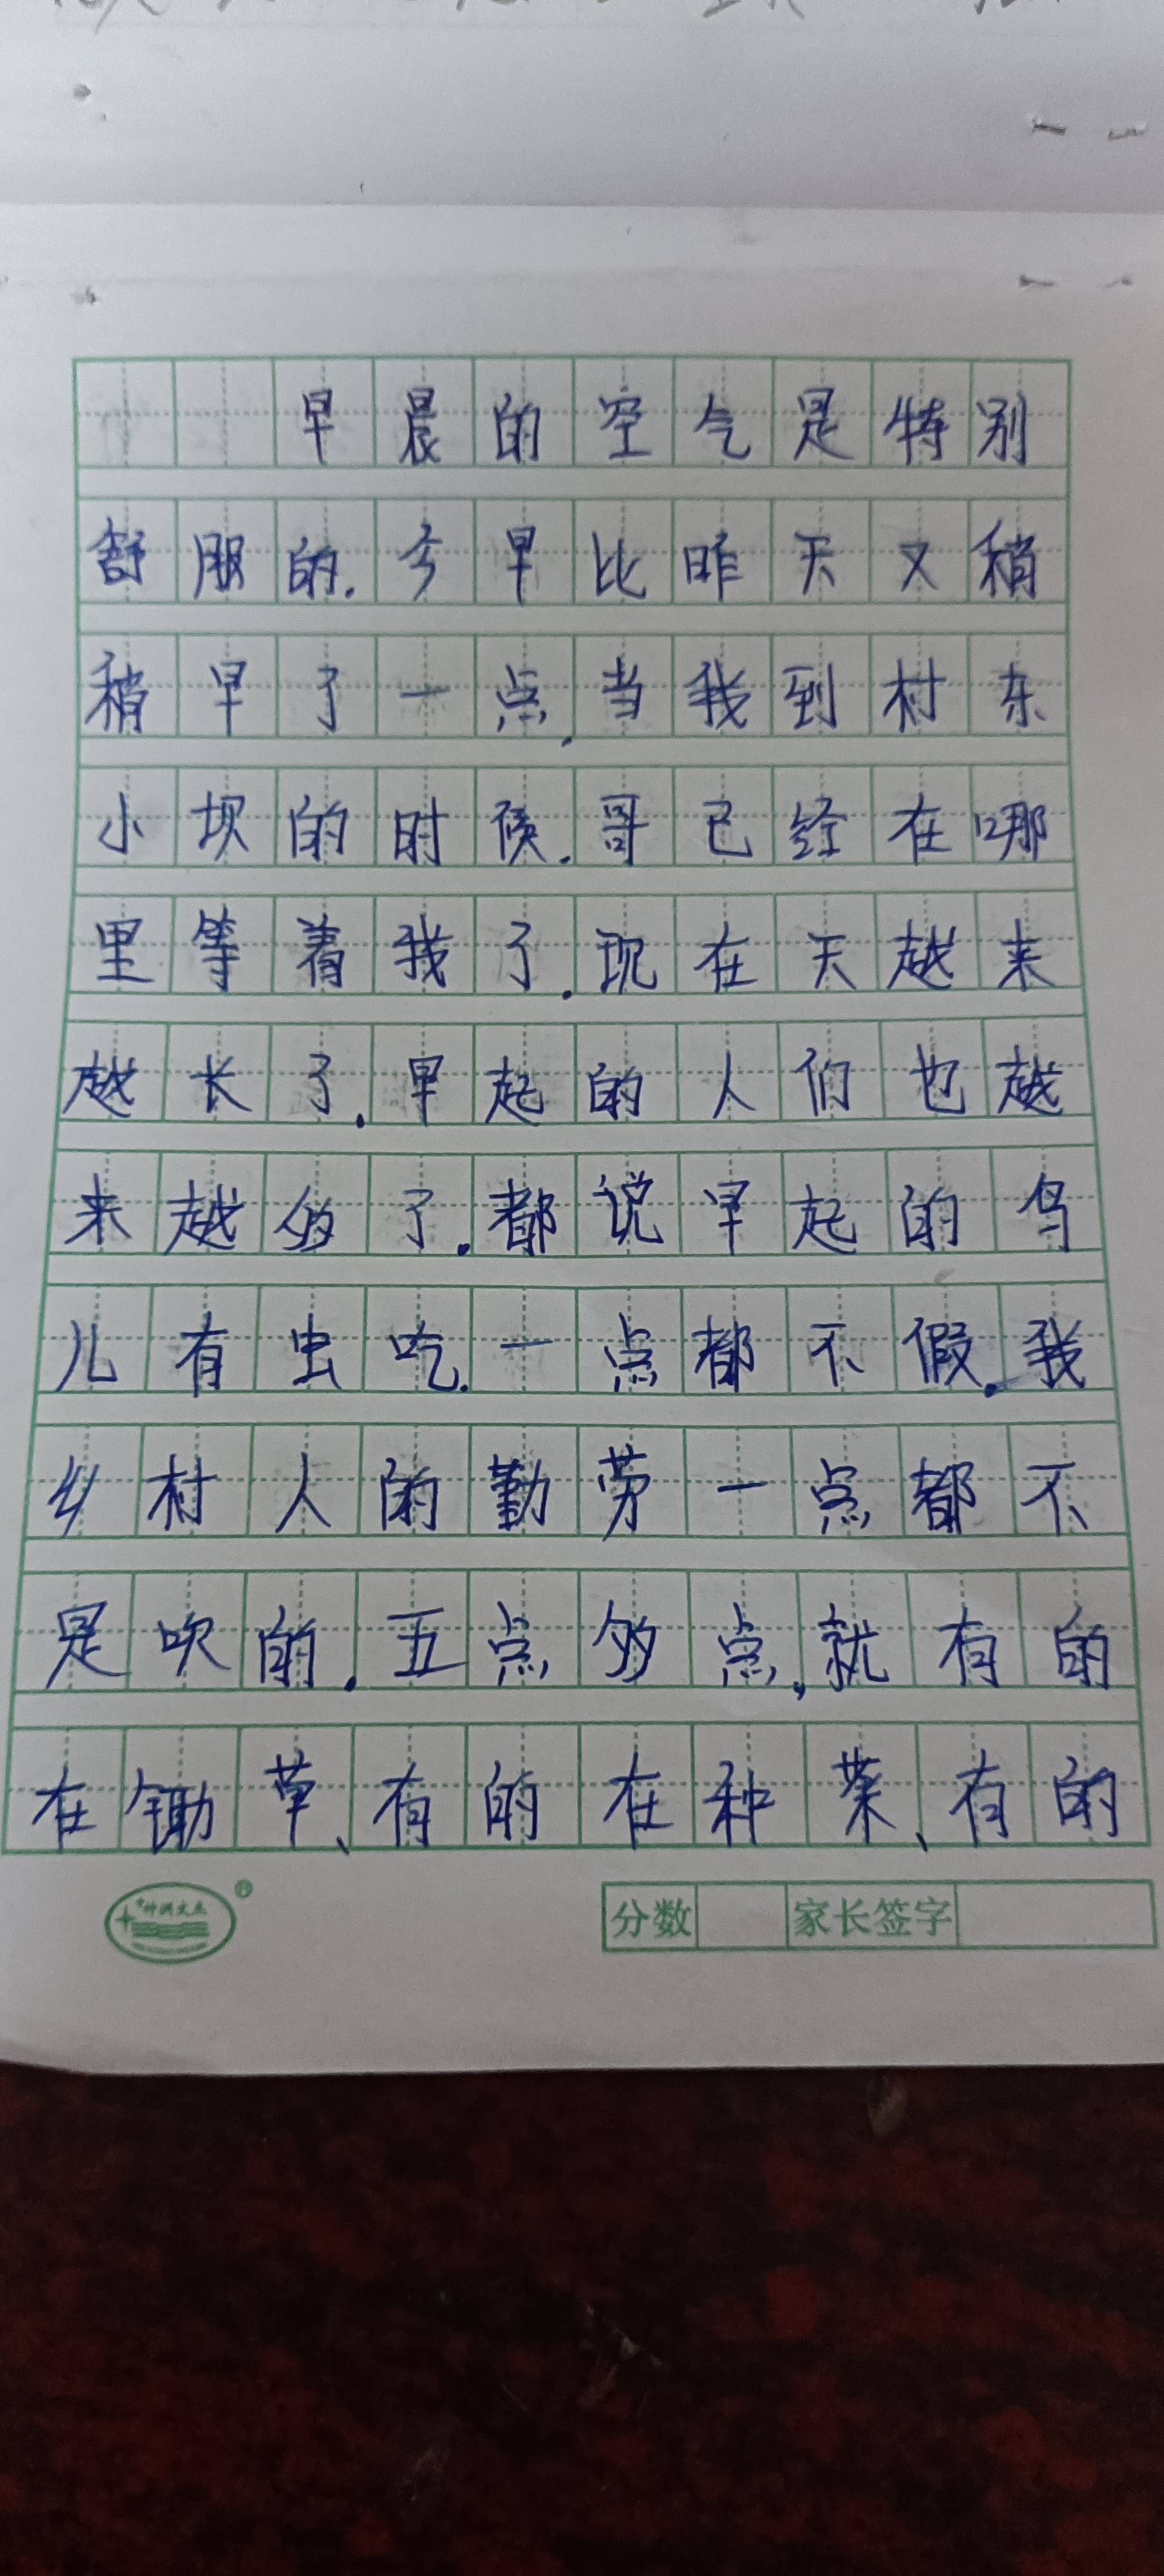 早晨的空气是特别
舒服的.今早比昨天又稍
稍早了一点.当我到村东
小坝的时候.哥已经在哪
里等着我了.现在天越来
越长了.早起的人们也越
来越多了.都说早起的鸟
儿有虫吃.一点都不假.我
乡村人的勤劳一点都不
是吹的.五点多点,就有的
在锄草、有的在种菜、有的
分数 家长签字